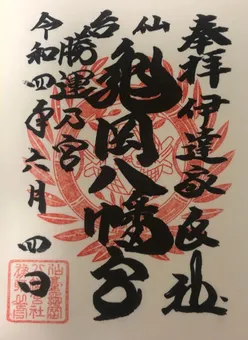 奉拝 伊達家氏社
仙台 亀岡八幡宮
勝運乃宮
令和四年六月四日